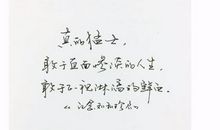 真的猛士，
敢于直面惨淡的人生，
敢于正视淋漓的鲜血。
《记念刘和珍君》